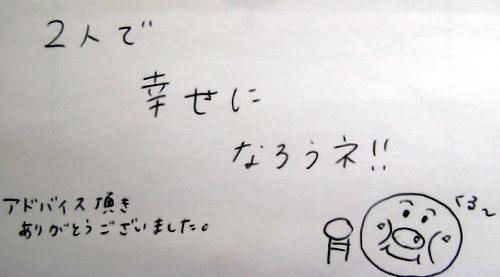 2人で
幸せに
なろうネ!!
アドバイス頂き
ありがとうございました。